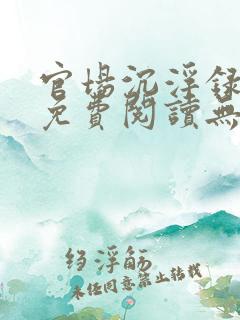 官場沉浮録
免費閱讀無
绉浮觞
未经同意禁止转载